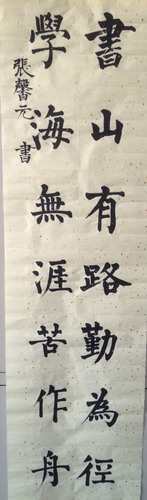 書山有路勤為徑
學海無涯苦作舟
張馨元 書